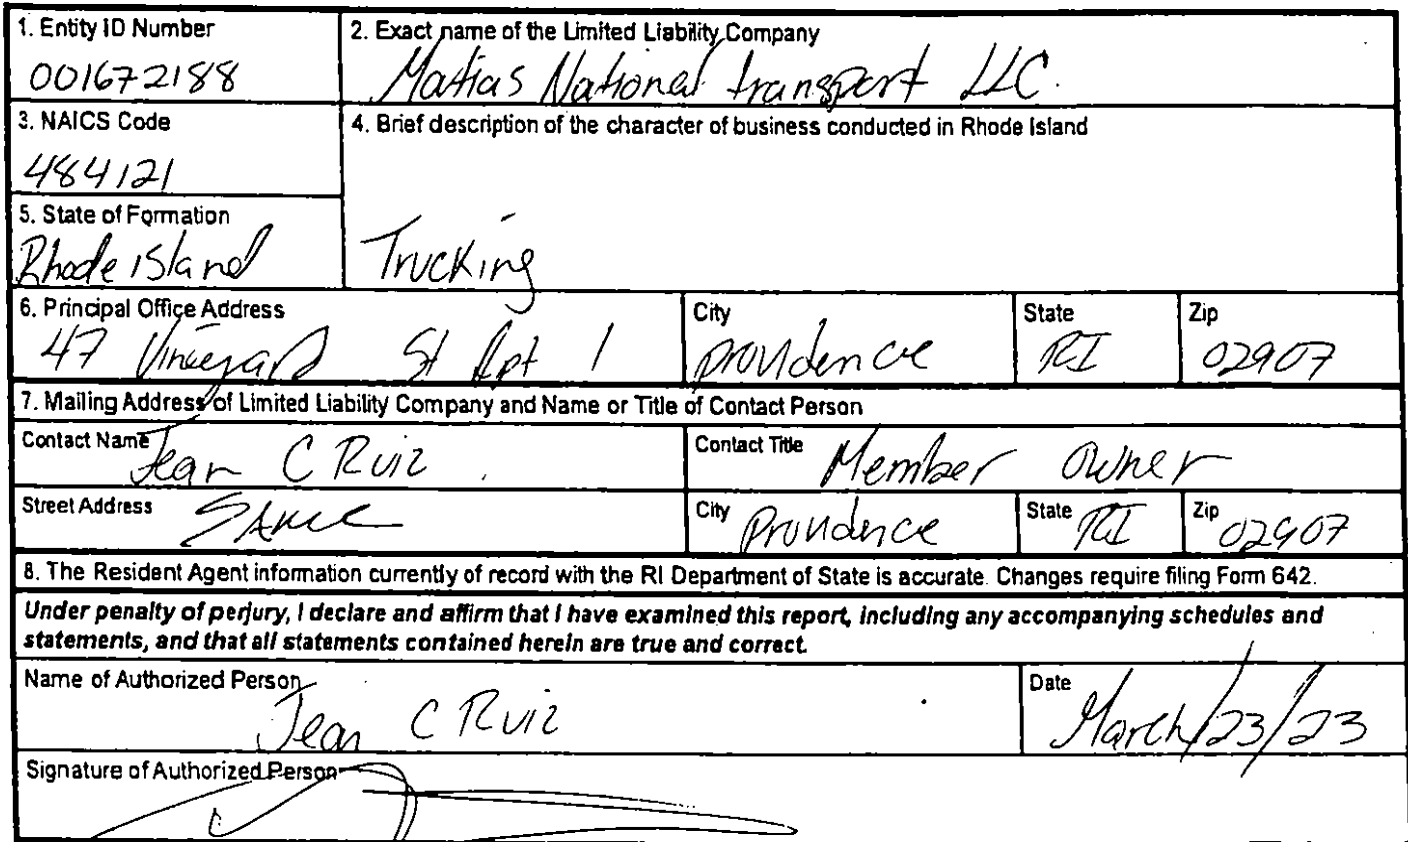 1. Entity ID Number
001672188
2. Exact name of the Limited Liability Company
Matias National transport LLC.
3. NAICS Code
484121
4. Brief description of the character of business conducted in Rhode Island
Trucking
5. State of Formation
Rhode island
6. Principal Office Address
47 Vineyard St Apt 1
City
providence
State
RI
Zip
02907
7. Mailing Address of Limited Liability Company and Name or Title of Contact Person
Contact Name
Jean C Ruiz
Contact Title
Member owner
Street Address
SAME
City
Providence
State
RI
Zip
02907
8. The Resident Agent information currently of record with the RI Department of State is accurate. Changes require filing Form 642.
Under penalty of perjury, I declare and affirm that I have examined this report, including any accompanying schedules and
statements, and that all statements contained herein are true and correct.
Name of Authorized Person
Jean C Ruiz
Date
March/23/23
Signature of Authorized Person